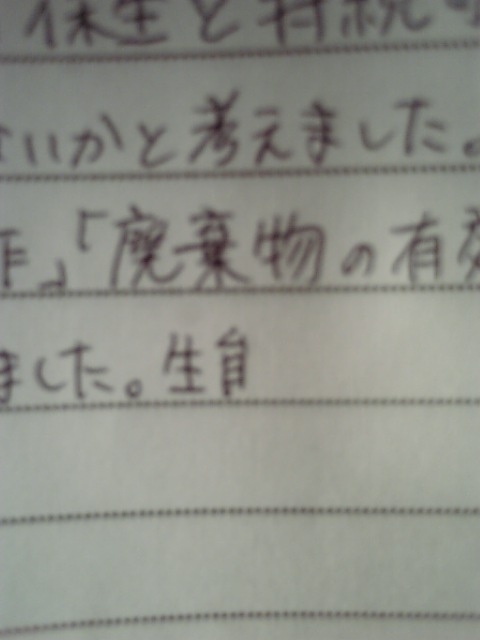 と持続
いかと考えました。
作」「廃棄物の有効
ました。生自